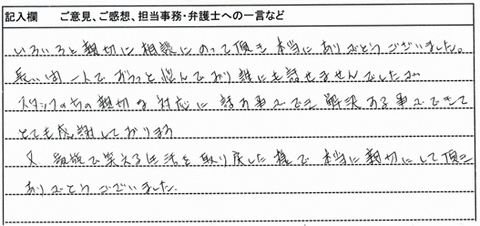 記入欄 ご意見、ご感想、担当事務・弁護士への一言など
いろいろと親切に相談にのって頂き本当にありがとうございました。
長い間一人でずっと悩んでおり誰にも話せませんでしたが
スタッフの方の親切な対応に話す事ができ解決する事ができて
とても感謝しております
又家族で笑える生活を取り戻した様で本当に親切にして頂き
ありがとうございました。